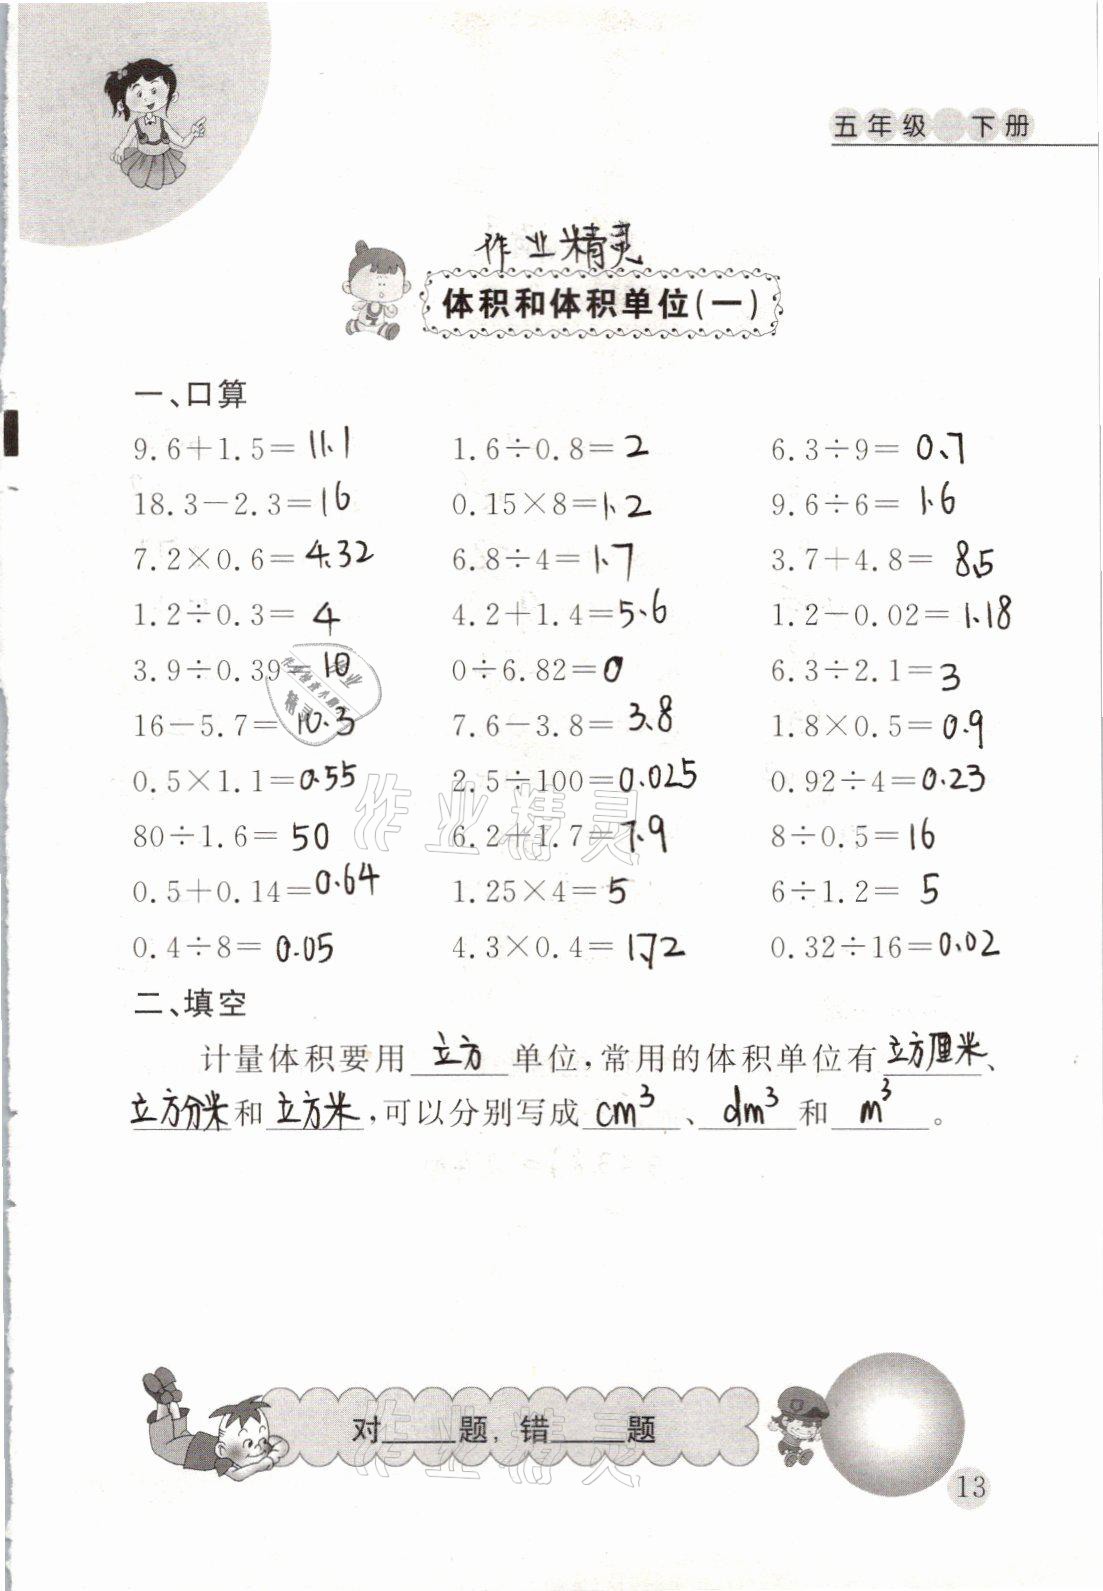 五年级 下册
作业精灵
体积和体积单位(一)
一、口算
9.6+1.5= 11.1 1.6÷0.8= 2 6.3÷9= 0.7
18.3-2.3= 16 0.15×8= 1.2 9.6÷6= 1.6
7.2×0.6= 4.32 6.8÷4= 1.7 3.7+4.8= 8.5
1.2÷0.3= 4 4.2+1.4= 5.6 1.2-0.02= 1.18
3.9÷0.39 10 0÷6.82= 0 6.3÷2.1= 3
16-5.7= 10.3 7.6-3.8= 3.8 1.8×0.5= 0.9
0.5×1.1= 0.55 2.5÷100= 0.025 0.92÷4= 0.23
80÷1.6= 50 6.2+1.7= 7.9 8÷0.5= 16
0.5+0.14= 0.64 1.25×4= 5 6÷1.2= 5
0.4÷8= 0.05 4.3×0.4= 1.72 0.32÷16= 0.02
作业精灵
二、填空
计量体积要用 立方 单位,常用的体积单位有 立方厘米、
立方分米 和 立方米,可以分别写成 cm³、dm³ 和 m³。
对____题,错____题
作业精灵
13